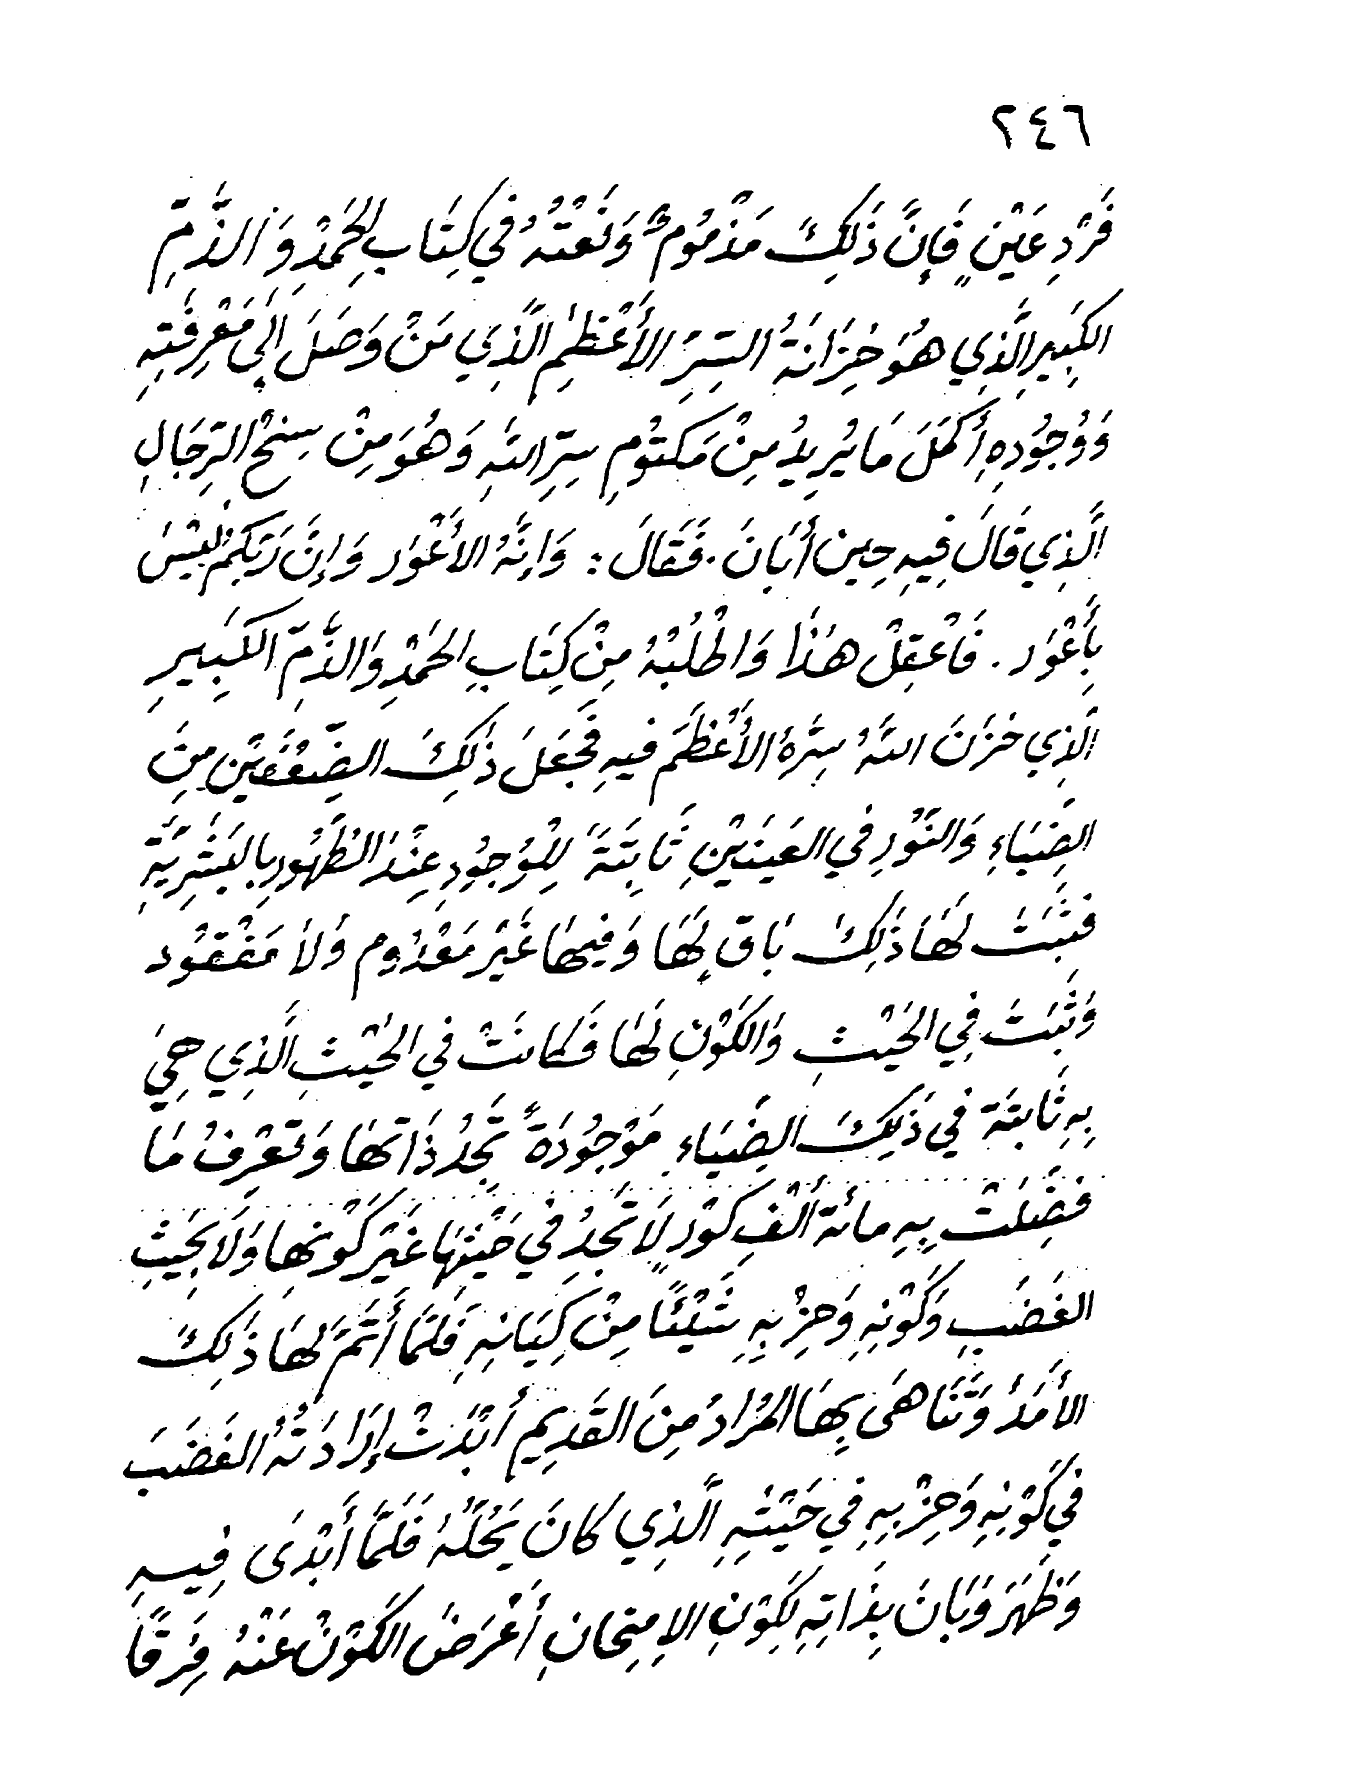 ٢٤٦
فَرْدِ عَيْنٍ فَإِنَّ ذَلِكَ مَذْمُومٌ وَنَعْتُهُ فِي كِتَابِ الحَمْدِ وَالذَّمِّ
الكَبِيرِ الَّذِي هُوَ خِزَانَةُ السِّرِّ الأَعْظَمِ الَّذِي مَنْ وَصَلَ إِلَى مَعْرِفَتِهِ
وَوُجُودِهِ أَكْمَلَ مَا يُرِيدُ مِنْ مَكْتُومِ سِرِّ اللهِ وَهُوَ مِنْ سِنْخِ الرِّجَالِ
الَّذِي قَالَ فِيهِ حِينَ أَبَانَ . فَقَالَ : وَإِنَّهُ الأَعْوَر وَإِنَّ رَبَّكُمْ لَيْسَ
بِأَعْوَر . فَاعْقِلْ هَذَا وَاطْلُبْهُ مِنْ كِتَابِ الحَمْدِ وَالذَّمِّ الكَبِيرِ
الَّذِي خَزَنَ اللهُ سِرَّهُ الأَعْظَمَ فِيهِ فَجَعَلَ ذَلِكَ الضِّعْفَيْنِ مِنَ
الضِّيَاءِ وَالنُّورِ فِي العَيْنَيْنِ ثَابِتَةً لِلْوُجُودِ عِنْدَ الظُّهُورِ بِالبَشَرِيَّةِ
فَثَبَتَ لَهَا ذَلِكَ بَاق لَهَا وَفِيهَا غَيْرَ مَعْدُومٍ وَلاَ مَفْقُود
وَثَبَتَ فِي الحَيْثِ وَالكَوْنِ لَهَا فَكَانَتْ فِي الحَيْثِ الَّذِي هِيَ
بِهِ ثَابِتَة فِي ذَلِكَ الضِّيَاءِ مَوْجُودَةً تَجِدُ ذَاتَهَا وَتَعْرِفُ مَا
فُضِّلَتْ بِهِ مائة أَلْفِ كَوْرٍ لاَ تَجِدُ فِي حَيْثِهَا غَيْرَ كَوْنِهَا وَلاَ بِحَيْثِ
الغَضَبِ وَكَوْنِهِ وَحِزْبِهِ شَيْئًا مِنْ كِيَانِهِ فَلَمَّا أَتَمَّ لَهَا ذَلِكَ
الأَمَدُ وَتَنَاهَى بِهَا المُرَادُ مِنَ القَدِيمِ أَبْدَتْ إِرَادَتُهُ الغَضَبَ
فِي كَوْنِهِ وَحِزْبِهِ فِي حَيْثِهِ الَّذِي كَانَ يَحُلُّهُ فَلَمَّا أَبْدَى فِيهِ
وَظَهَرَ وَبَانَ بِذَاتِهِ لِكَوْنِ الإِمْتِحَانِ أَعْرَضَ الكَوْنُ عَنْهُ فِرَقًا